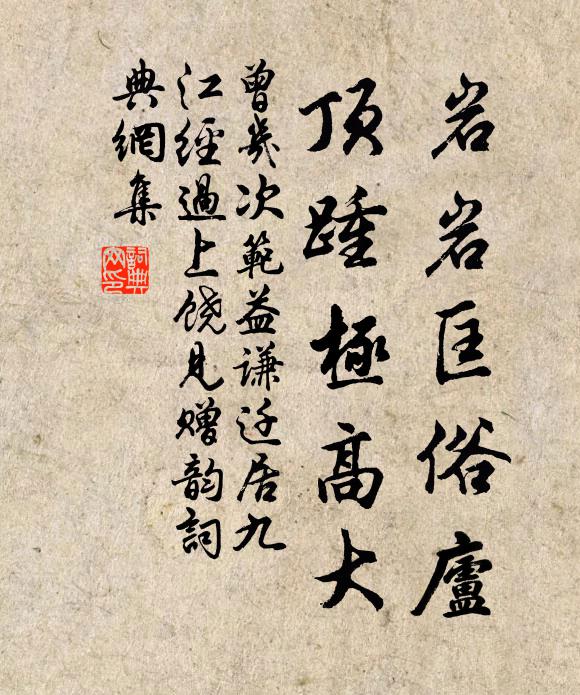 岩岩匡俗廬
頂踵極高大
曾幾次範益謙迁居九
江經過上饶見贈韵詞
典網集
詞典網印